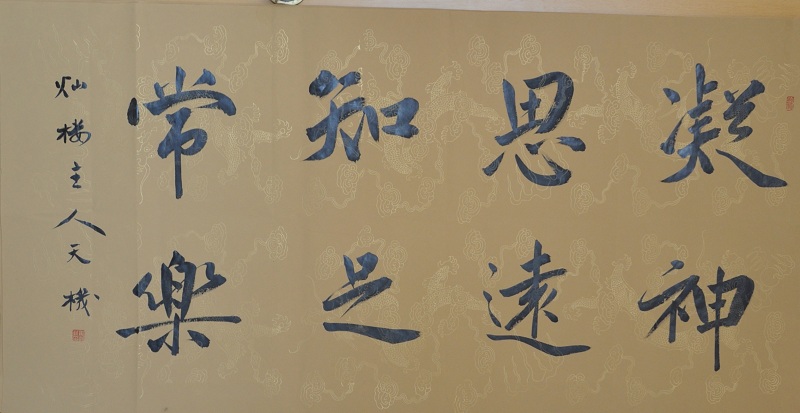 凝神
思遠
知足
常樂
灿楼主人天機